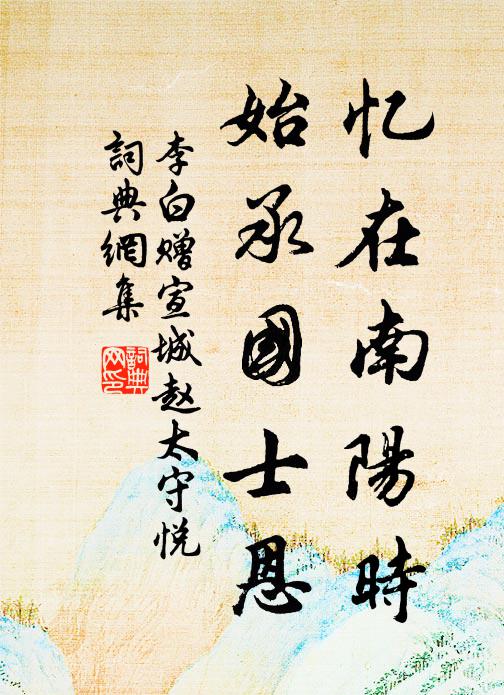 忆在南陽時
始承國士恩
李白赠宣城赵太守悦
詞典網集
詞典網印